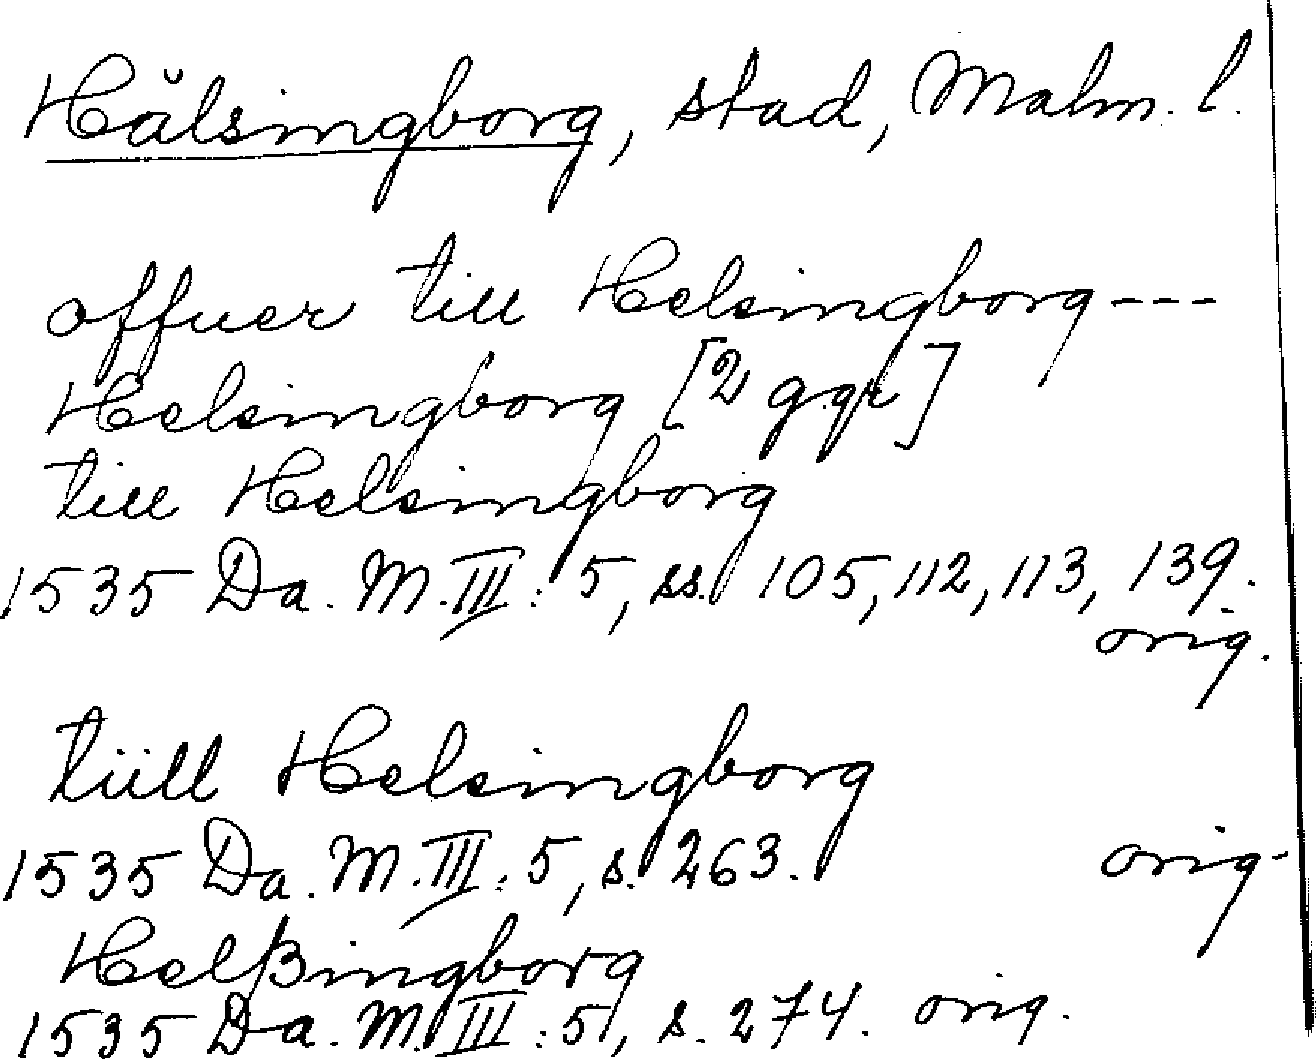 Hälsingborg, stad, Malm. l.
offuer till Helsingborg---
Helsingborg [2 ggr]
till Helsingborg
1535 Da. M. III: 5, ss. 105, 112, 113, 139.
orig.
tiill Helsingborg
1535 Da. M. III: 5, s. 263. orig.
Helßingborg
1535 Da. M. III: 5, s. 274. orig.